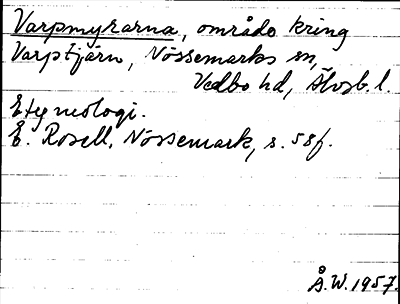 Varpmyrarna, område kring
Varptjärn, Nössemarks sn,
Vedbo hd, Älvsb. l.
Etymologi.
E. Rosell, Nössemark, s. 58f.
Å.W. 1957.